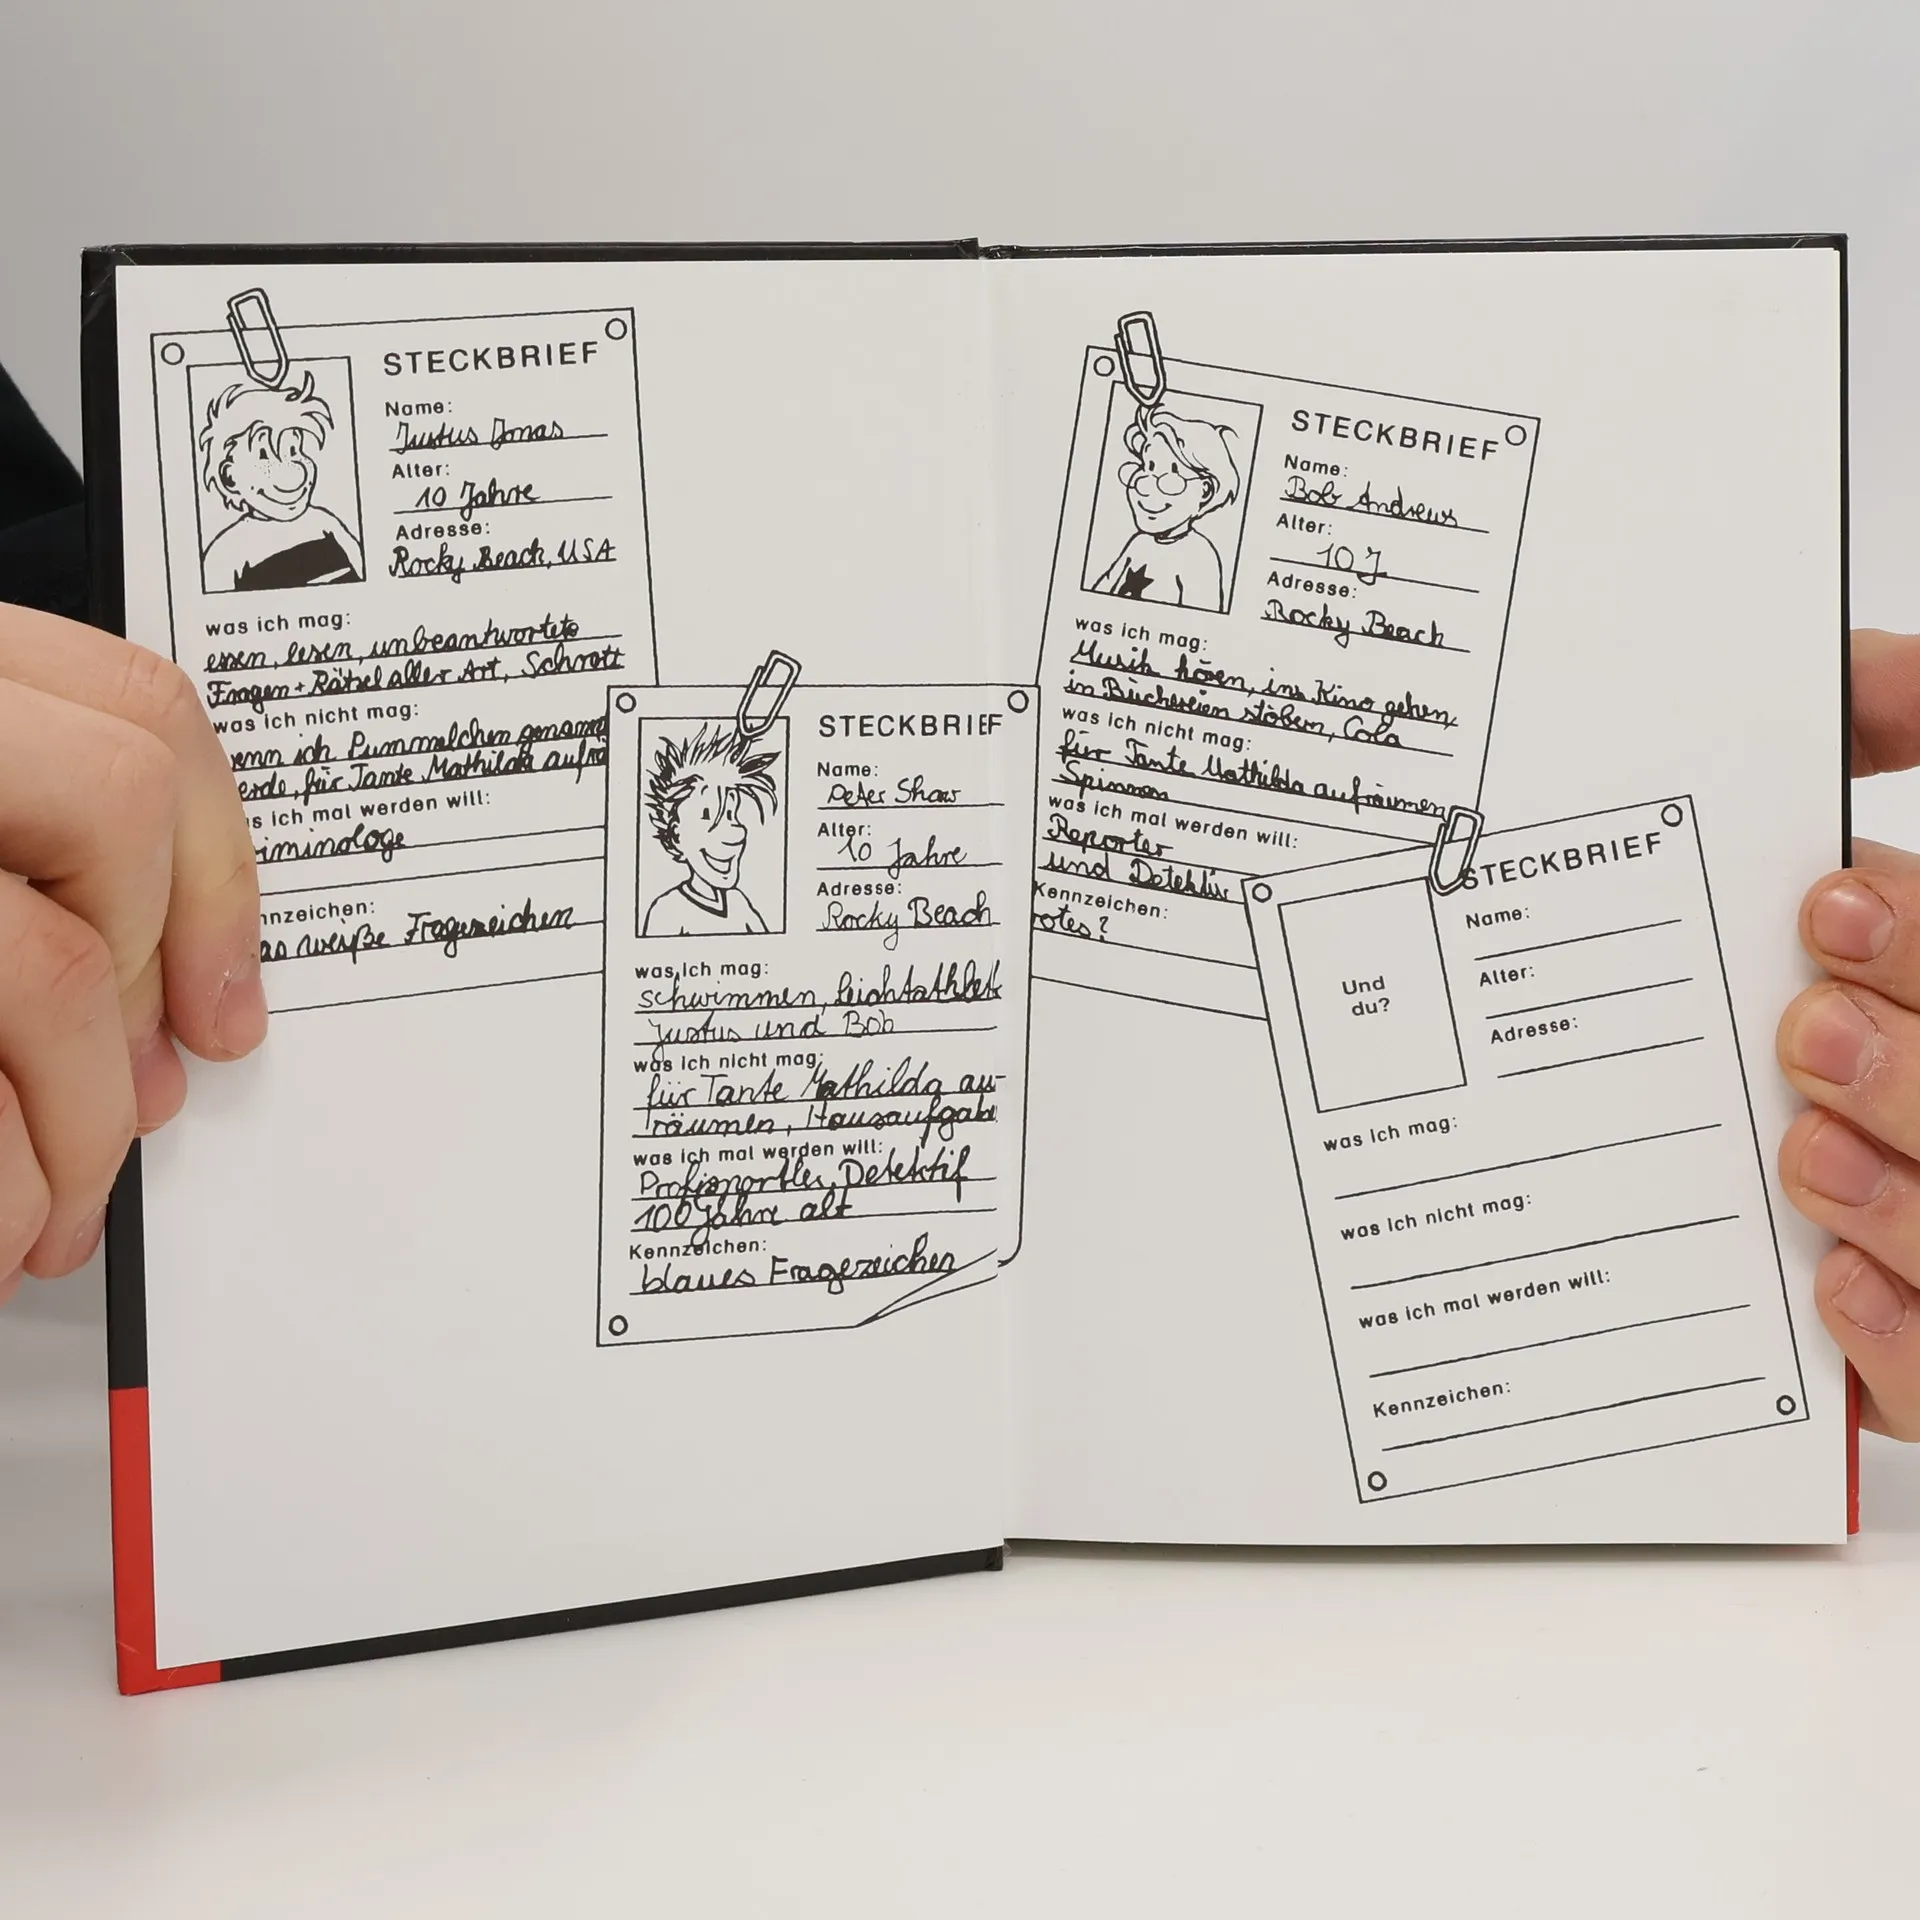 STECKBRIEF
Name:
Justus Jonas
Alter:
10 Jahre
Adresse:
Rocky Beach, USA
was ich mag:
essen, lesen, unbeantwortete
Fragen + Rätsel aller Art, Schrott
was ich nicht mag:
wenn ich Pummelchen genannt
erde, für Tante Mathilda aufrä
s ich mal werden will:
riminologe
nnzeichen:
as weiße Fragezeichen
STECKBRIEF
Name:
Peter Shaw
Alter:
10 Jahre
Adresse:
Rocky Beach
was ich mag:
schwimmen, Leichtathlet
Justus und Bob
was ich nicht mag:
für Tante Mathilda au-
räumen, Hausaufgabe
was ich mal werden will:
Profisportler, Detektif
100 Jahre alt
Kennzeichen:
blaues Fragezeichen
STECKBRIEF
Name:
Bob Andrews
Alter:
10 J
Adresse:
Rocky Beach
was ich mag:
Musik hören, ins Kino gehen,
in Büchereien stöbern, Cola
was ich nicht mag:
für Tante Mathilda aufräumen,
Spinnen
was ich mal werden will:
Reporter
und Detektiv
Kennzeichen:
rotes ?
STECKBRIEF
Und
du?
Name:
Alter:
Adresse:
was ich mag:
was ich nicht mag:
was ich mal werden will:
Kennzeichen: